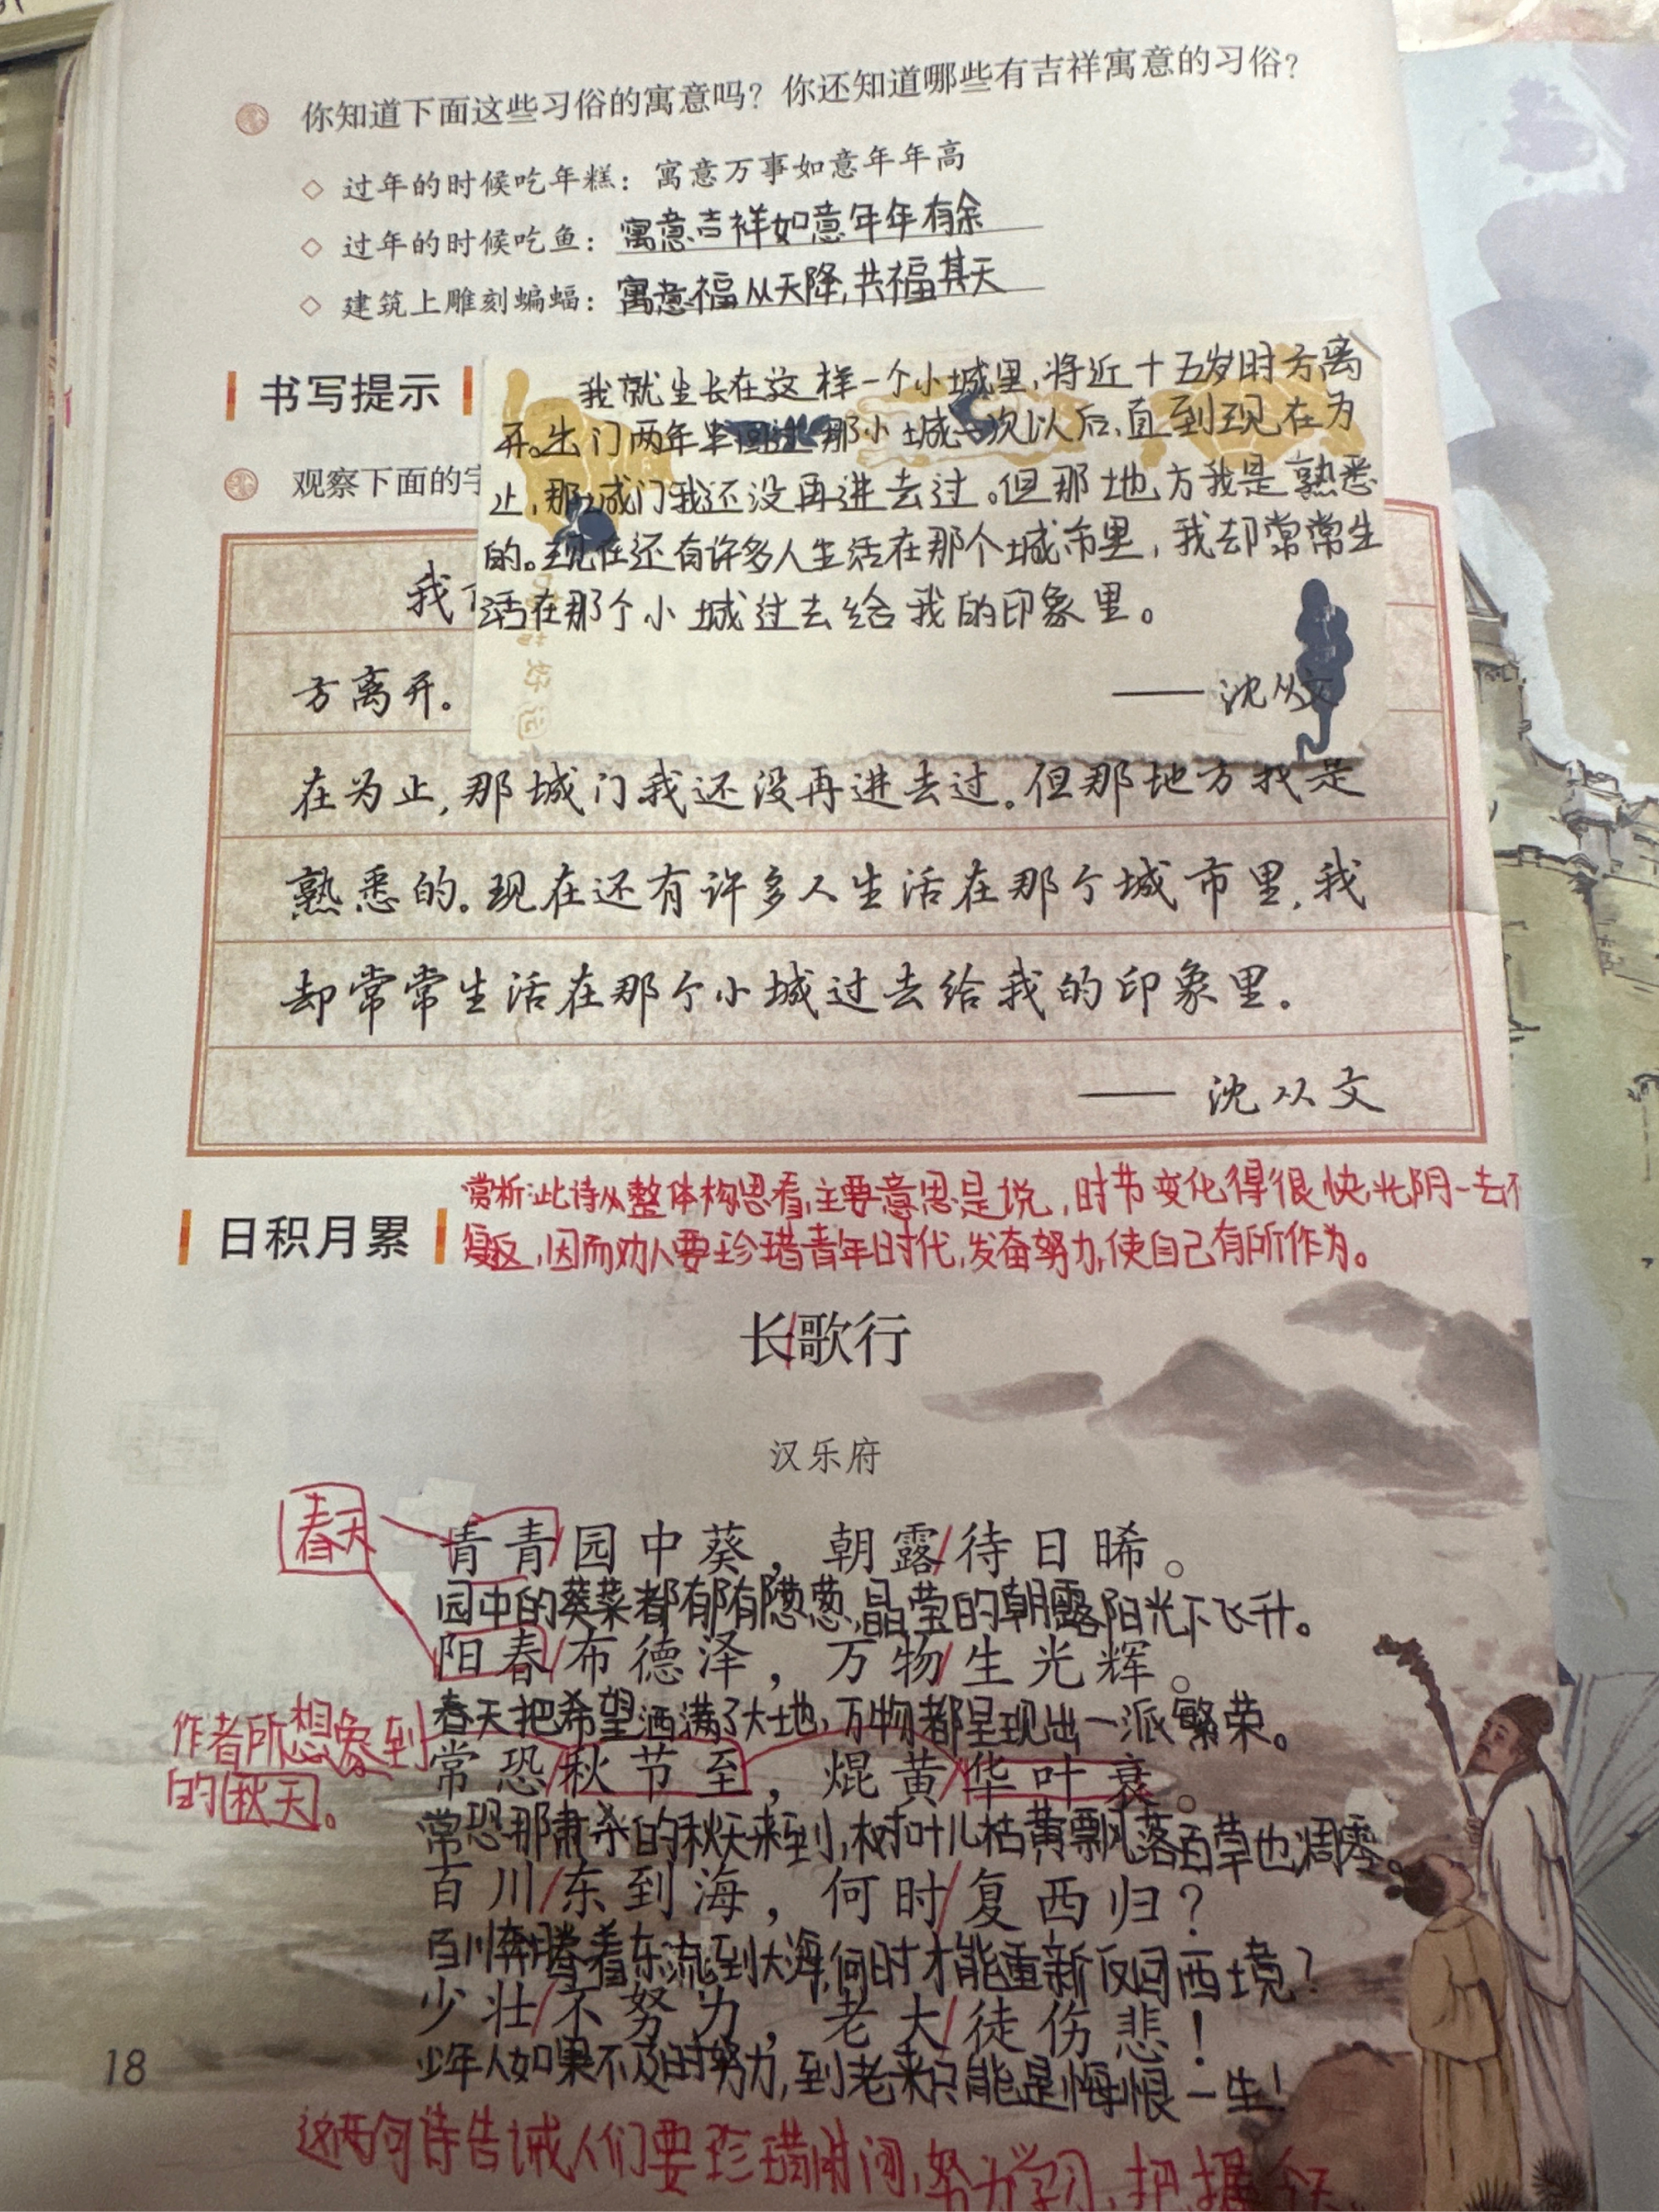 你知道下面这些习俗的寓意吗？你还知道哪些有吉祥寓意的习俗？
◇ 过年的时候吃年糕：寓意万事如意年年高
◇ 过年的时候吃鱼：寓意吉祥如意年年有余
◇ 建筑上雕刻蝙蝠：寓意福从天降,共福其天
书写提示
观察下面的字
我就生长在这样一个小城里,将近十五岁时方离
开。出门两年半回过那小城一次以后,直到现在为
止,那城门我还没再进去过。但那地方我是熟悉
的。现在还有许多人生活在那个城市里，我却常常生
活在那个小城过去给我的印象里。
——沈从文
我
方离开。
在为止,那城门我还没再进去过。但那地方我是
熟悉的。现在还有许多人生活在那个城市里,我
却常常生活在那个小城过去给我的印象里。
—— 沈从文
日积月累
赏析:此诗从整体构思看,主要意思是说,时节变化得很快,光阴一去不
复返,因而劝人要珍惜青年时代,发奋努力,使自己有所作为。
长/歌行
汉乐府
春天
青青/园中葵，朝露/待日晞。
园中的葵菜都郁郁葱葱,晶莹的朝露阳光下飞升。
阳春/布德泽，万物/生光辉。
春天把希望洒满了大地,万物都呈现出一派繁荣。
作者所想象到
的秋天。
常恐/秋节至，焜黄/华叶衰。
常恐那肃杀的秋天来到,树叶儿枯黄飘落百草也凋零。
百川/东到海，何时/复西归？
百川奔腾着东流到大海,何时才能重新反回西境?
少壮/不努力，老大/徒伤悲！
少年人如果不及时努力,到老来只能是悔恨一生!
18
这两句诗告诫人们要珍惜时间,努力学习,把握今天